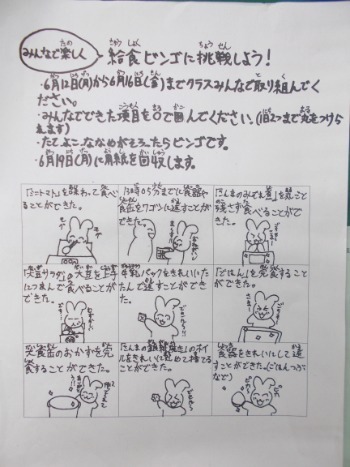 みんなで楽しく 給食ビンゴに挑戦しよう!
・6月12日(月)から6月16日(金)までクラスみんなで取り組んでく
ださい。
・みんなでできた項目を○で囲んでください。(1日2つまで丸をつけら
れます)
・たて、よこ、ななめがそろったらビンゴです。
・6月19日(月)に用紙を回収します。
「ミニトマト」を味わって食べ
ることができた。
13時05分までに食器や
食缶をワゴンに返すことが
できた。
「さんまのみぞれ煮」を残さず
食べることができ
た。
「大豆サラダ」の大豆を上手
につまんで食べることが
できた。
牛乳パックをきれいにた
たんで返すことができ
た。
「ごはん」を完食すること
ができた。
食缶のおかずを完
食することができた。
ルをきれいに
できた。
食器をきれいにして返
すことができた。(ごはんつぶ
など)